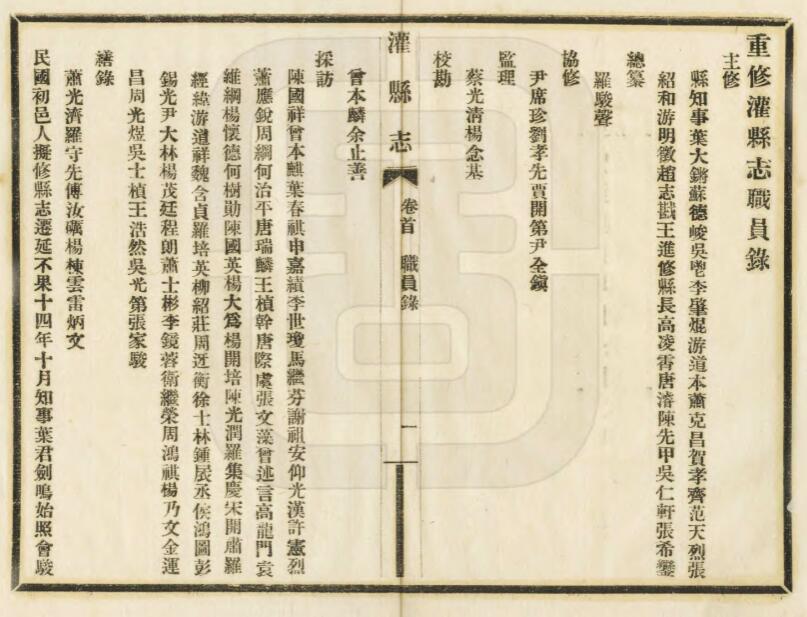 重修灌縣志職員錄
主修
縣知事葉大鏘蘇德峻吳鬯李肇焜游道本蕭克昌賀孝齊范天烈張
紹和游明徵趙志戡王進修縣長高凌霄唐濬陳先甲吳仁軒張希鑾
總纂
羅駿聲
協修
尹席珍劉孝先賈開第尹全鎭
監理
蔡光淸楊念基
灌縣志
卷首
職員錄
一
校勘
曾本麟余止善
採訪
陳國祥曾本麒葉春祺申嘉績李世瓊馬繼芬謝祖安仰光漢許憲烈
蕭應銳周綱何治平唐瑞麟王楨幹唐際虞張文藻曾述言高龍門袁
維綱楊懷德何樹勛陳國英楊大爲楊開培陳光潤羅集慶宋開肅羅
經緯游道祥魏含貞羅培英柳紹莊周迓衡徐士林鍾扆丞侯鴻圖彭
錫光尹大林楊茂廷程朗蕭士彬李鏡蓉衛繼榮周鴻祺楊乃文金運
昌周光煜吳士楨王浩然吳光第張家駿
繕錄
蕭光濟羅守先傅汝礪楊棟雲雷炳文
民國初邑人擬修縣志遷延不果十四年十月知事葉君劍鳴始照會駿